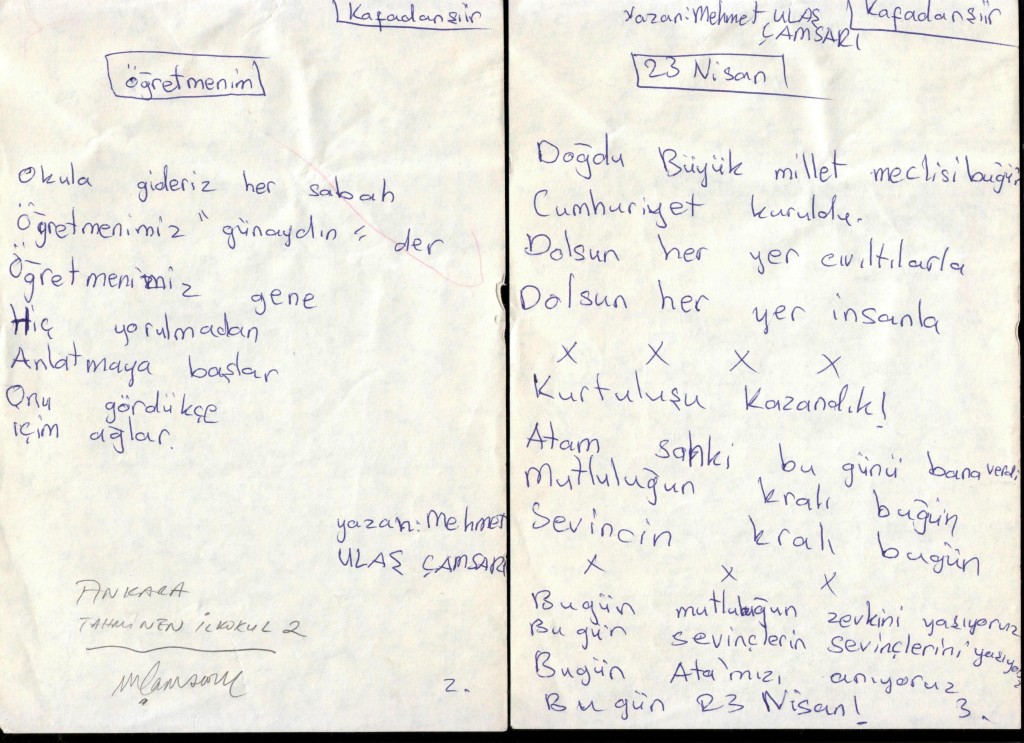 Kafadan şiir
öğretmenim
Okula gideriz her sabah
Öğretmenimiz "günaydın" der
Öğretmenimiz gene
Hiç yorulmadan
Anlatmaya başlar
Onu gördükçe
içim ağlar.
yazan: Mehmet
ULAŞ ÇAMSARI
ANKARA
TAHMİNEN İLKOKUL 2
2.
Yazan: Mehmet ULAŞ
ÇAMSARI
Kafadan şiir
23 Nisan
Doğdu Büyük millet meclisi buğün
Cumhuriyet kuruldu.
Dolsun her yer cıvıltılarla
Dolsun her yer insanla
X X X X
Kurtuluşu Kazandık!
Atam sanki bu günü bana verdi
Mutluluğun kralı buğün
Sevincin kralı bugün
X X X
Bugün mutluluğun zevkini yaşıyoruz
Bugün sevinçlerin sevinçlerini yaşıyoruz
Bugün Ata'mızı anıyoruz
Bugün 23 Nisan!
3.